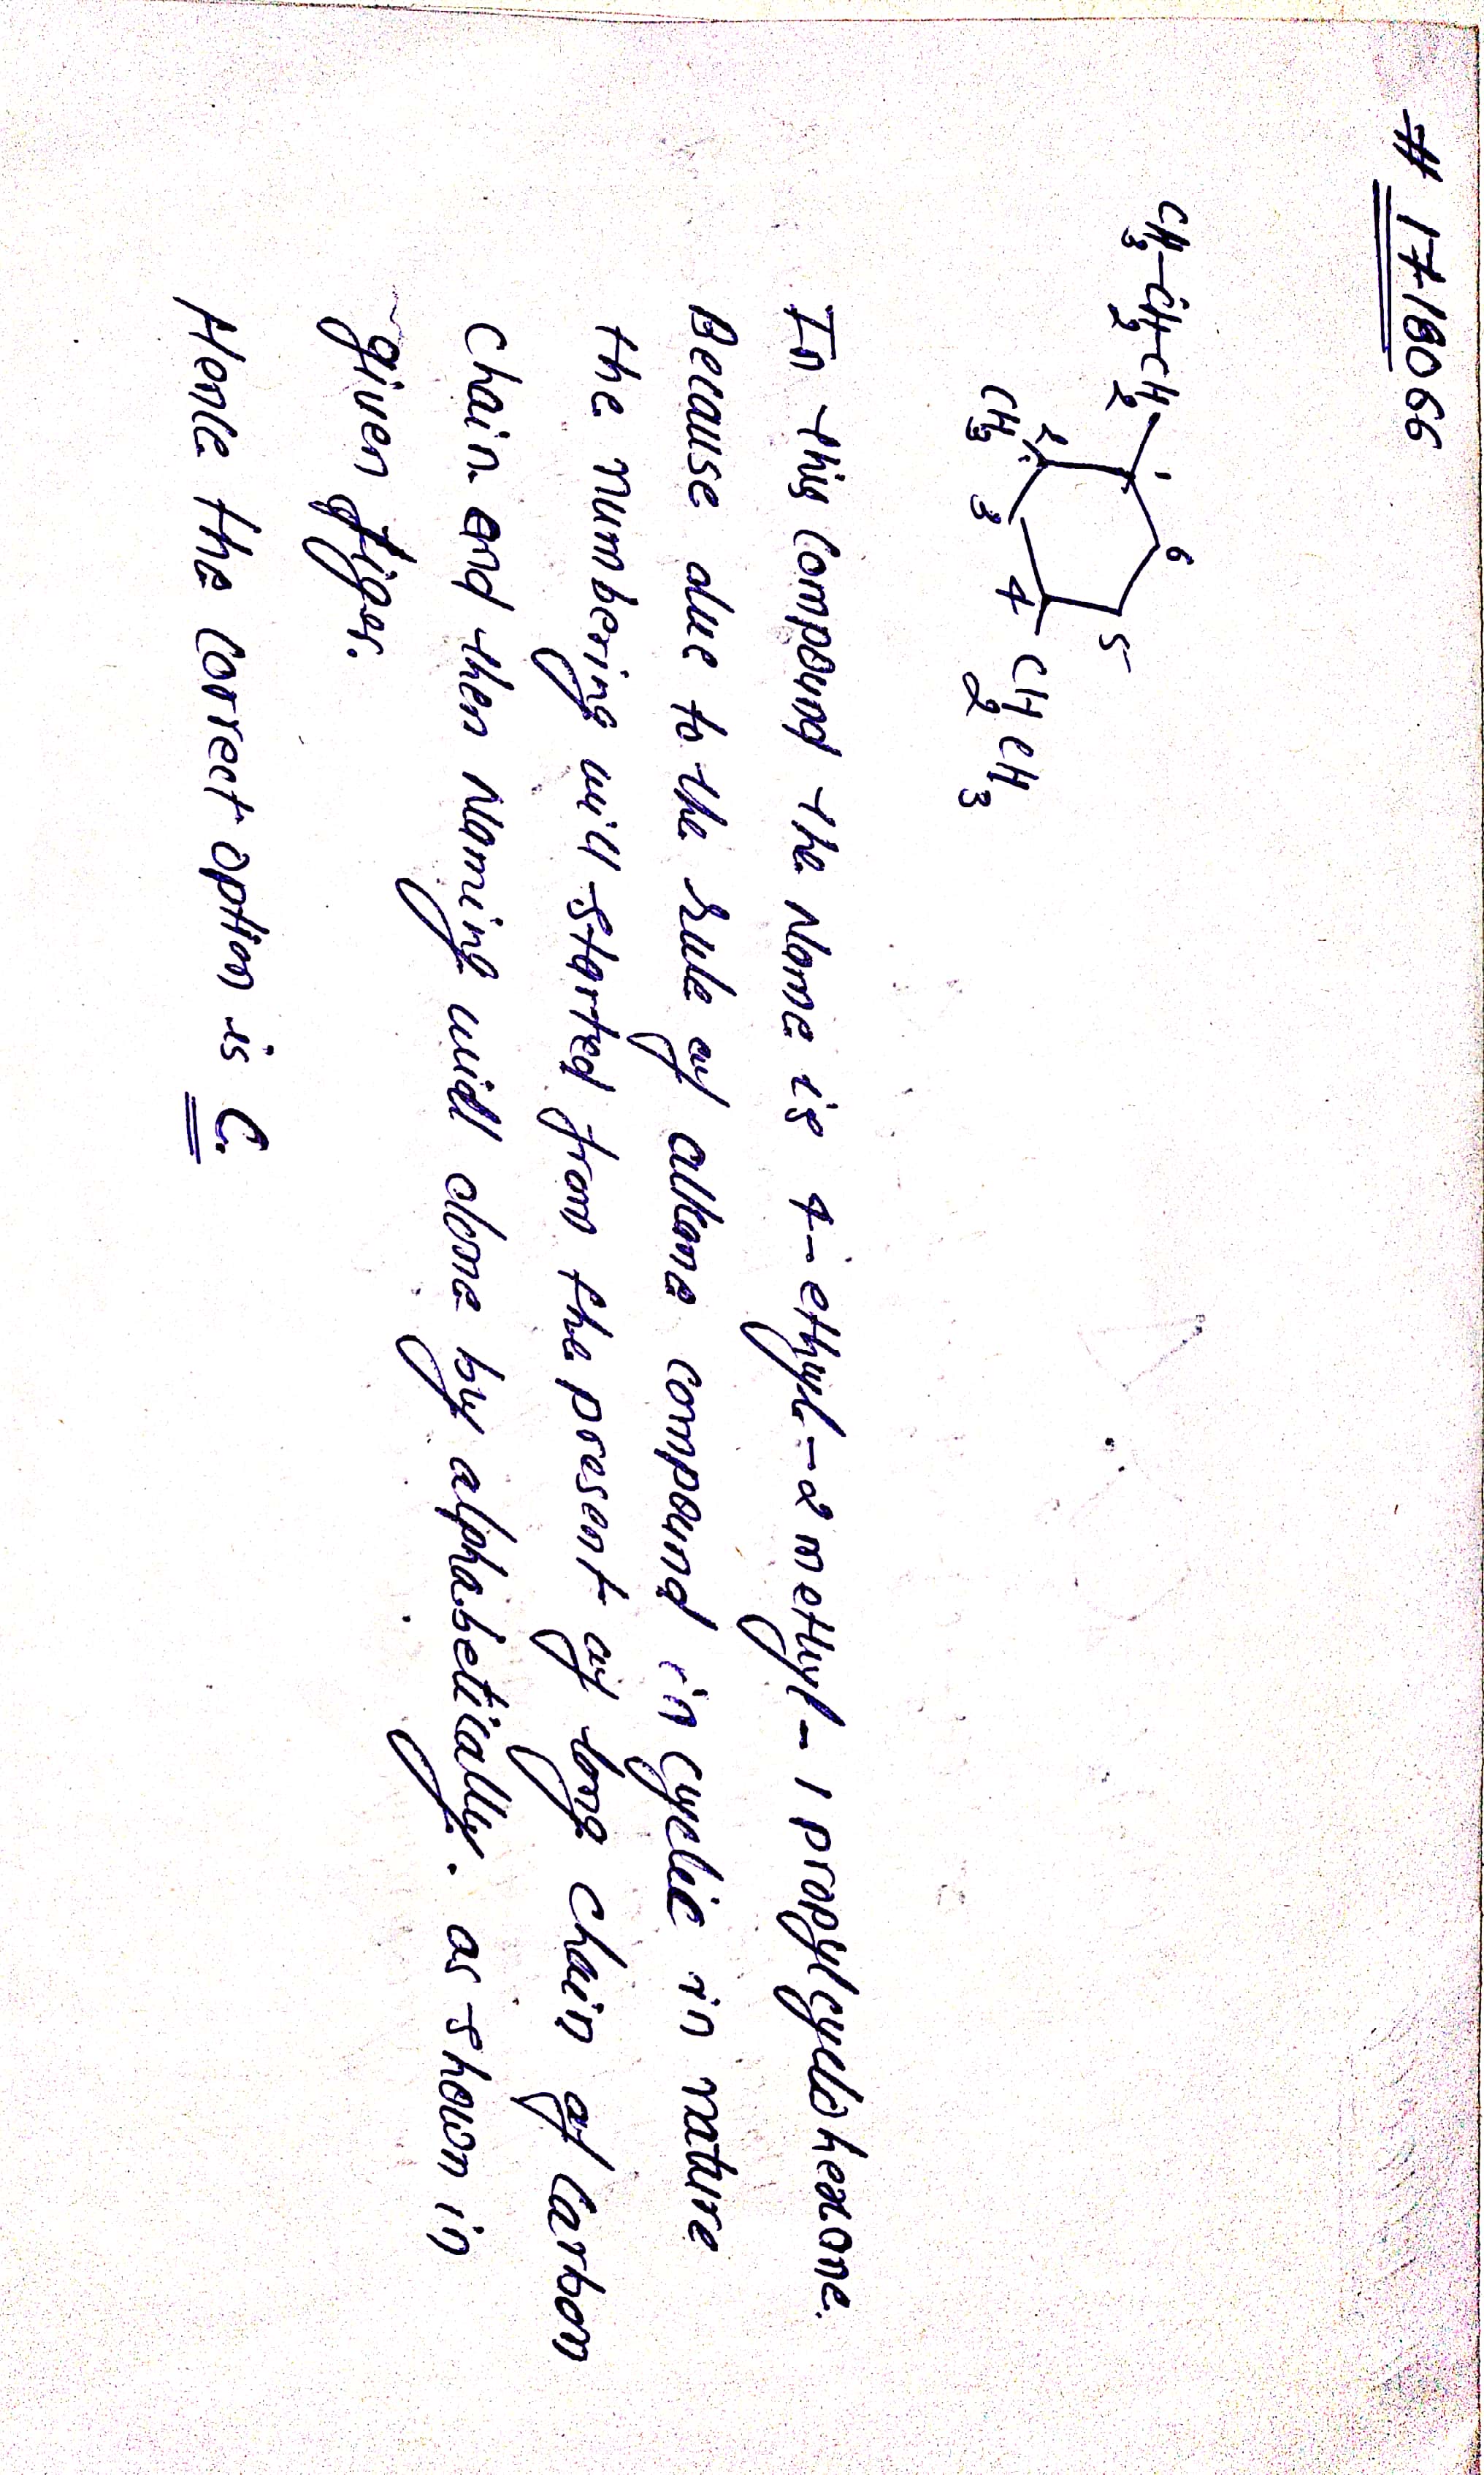 # 1718066
CH3-CH2-CH2
1
6
5
2
CH3
3
4
CH2CH3
In this compound the Name is 4-ethyl-2methyl-1propylcyclohexane.
Because due to the rule of alkane compound in cyclic in nature
the numbering will started from the present of long chain of carbon
chain and then Naming will done by alphabetically. as shown in
given figer.
Hence the correct option is C.